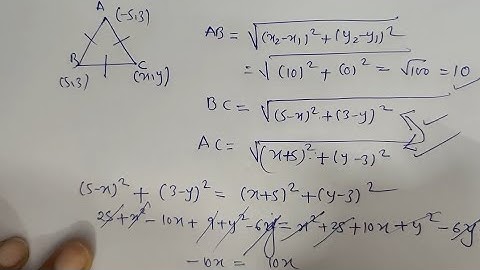 A (-5,3)
B (5,3)
C (x,y)
AB = √(x₂-x₁)² + (y₂-y₁)²
= √(10)² + (0)² = √100 = 10
BC = √(5-x)² + (3-y)²
AC = √(x+5)² + (y-3)²
(5-x)² + (3-y)² = (x+5)² + (y-3)²
25+x²-10x+9+y²-6y = x²+25+10x+y²-6y
-10x = 10x